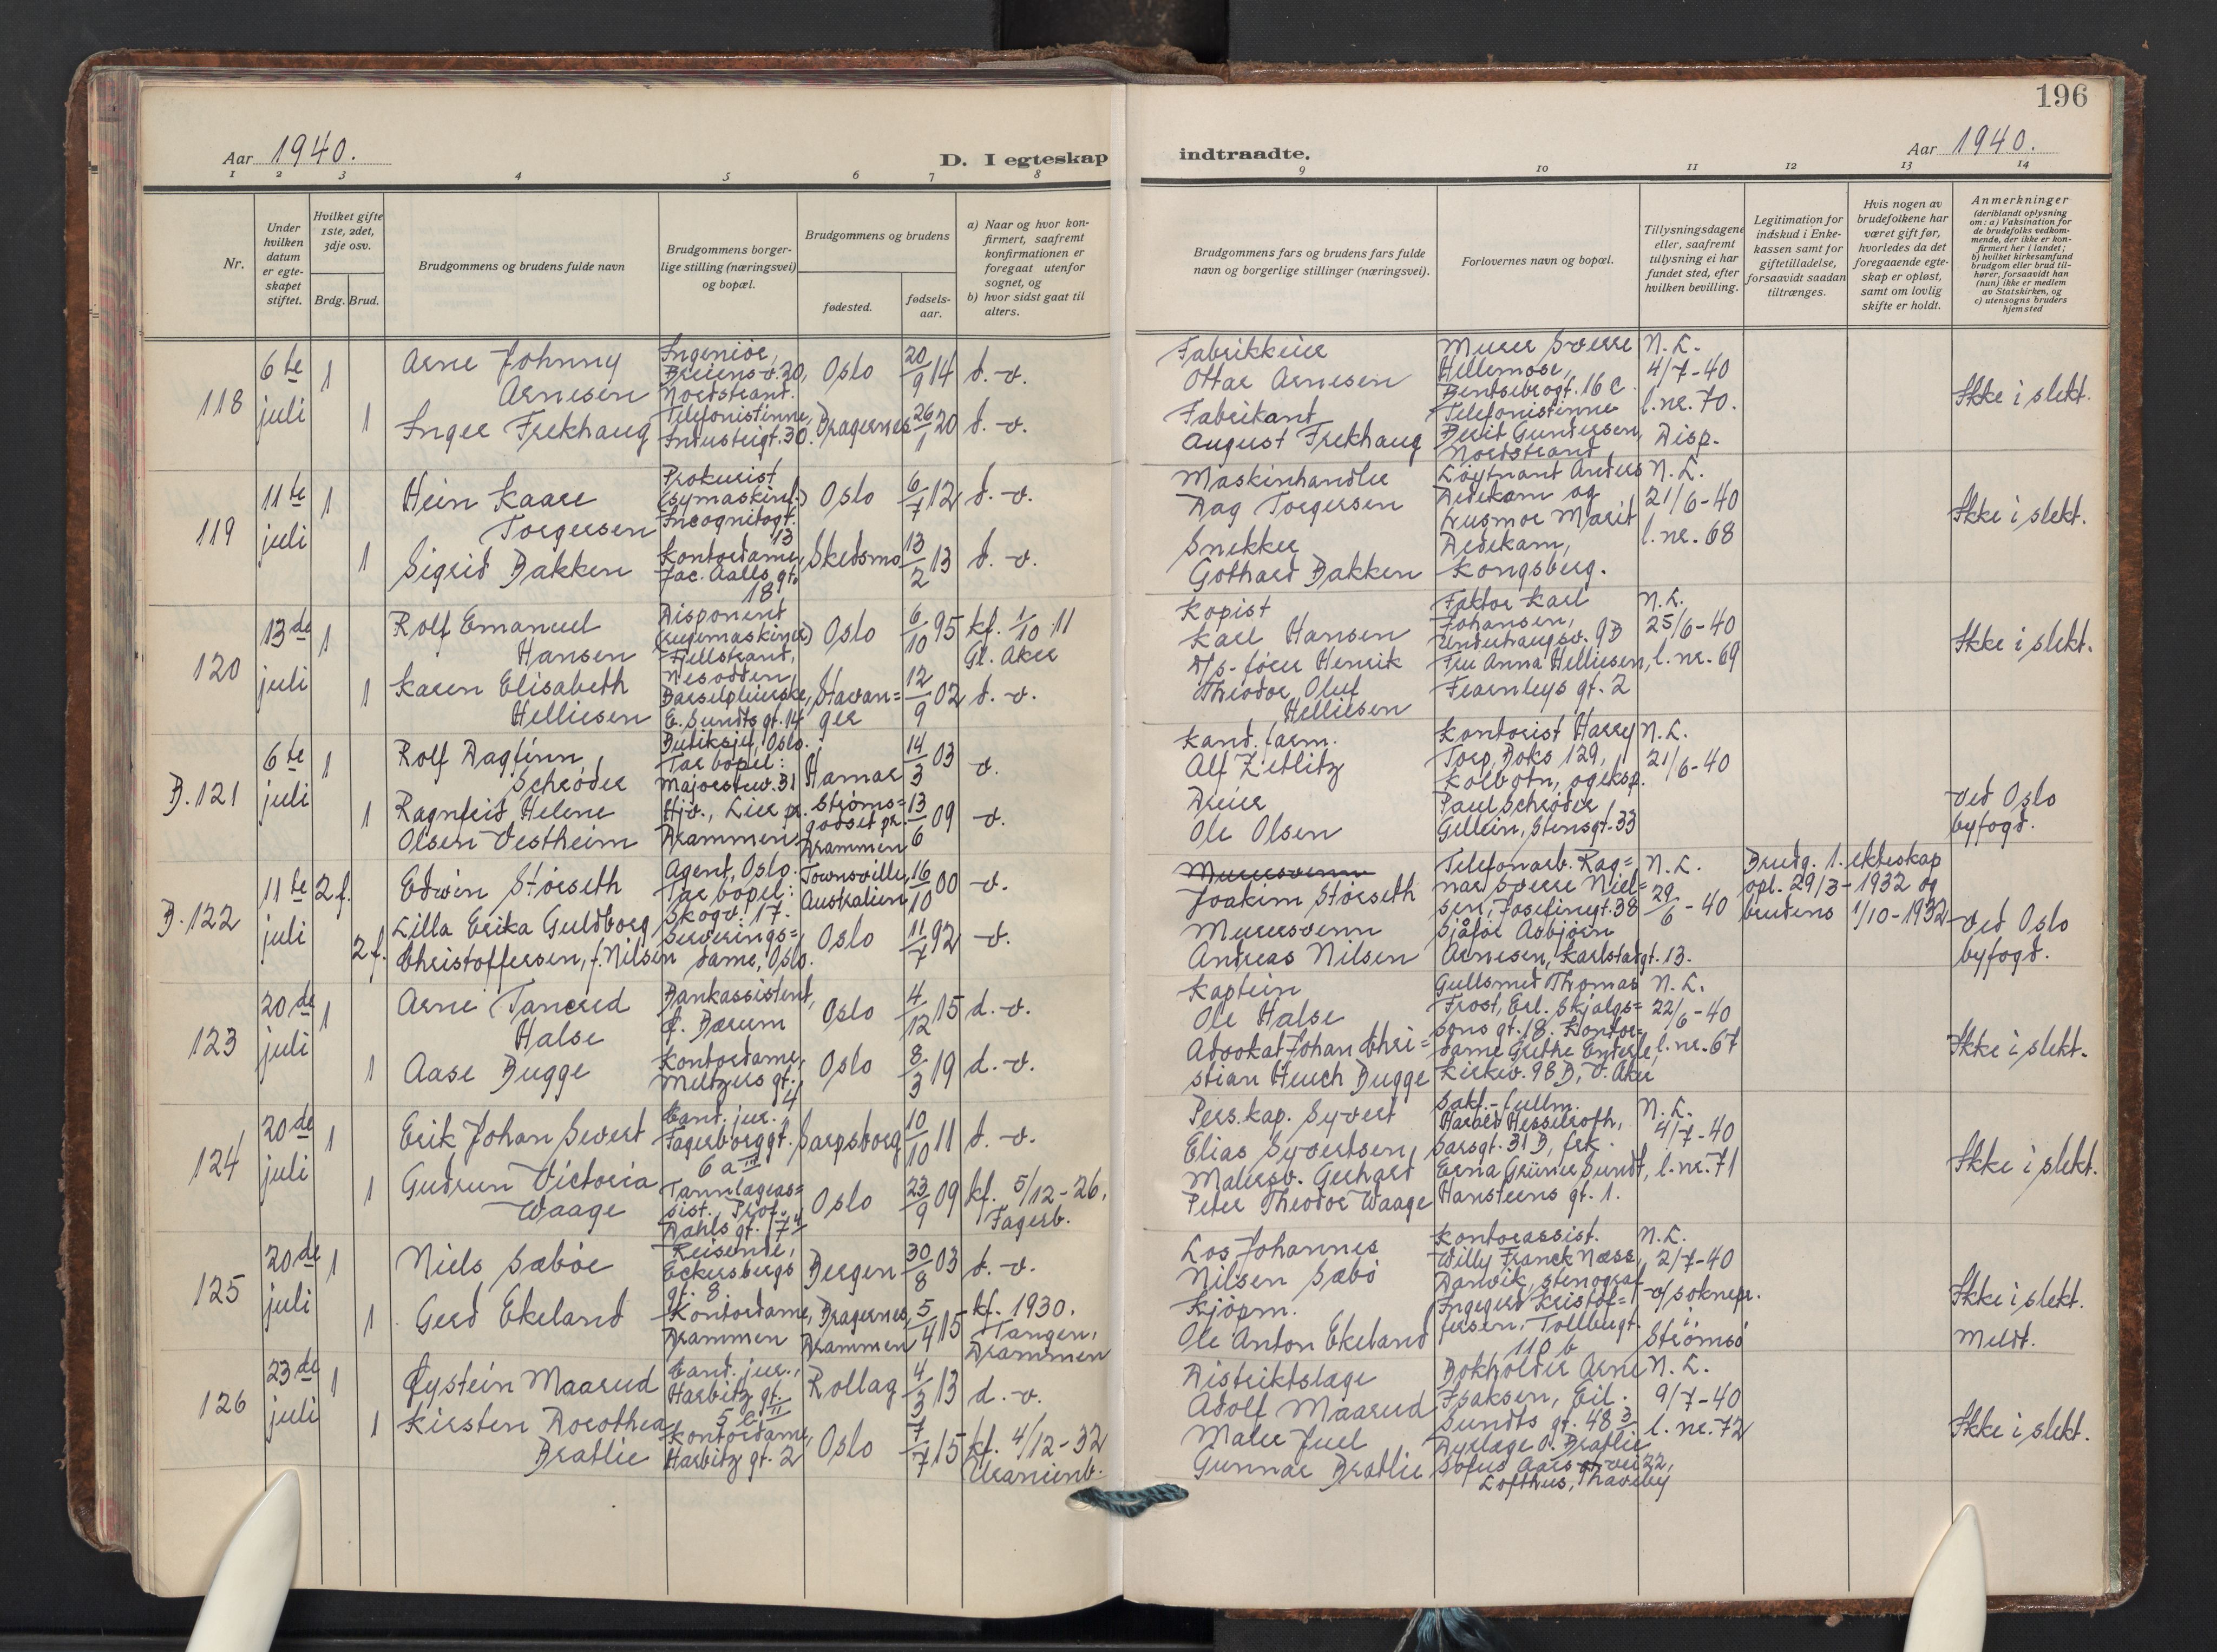 196
Aar 1940.
D. I egteskap
indtraadte.
Aar 1940.
1 2 3 4 5 6 7 8
9 10 11 12 13 14
Nr.
Under
hvilken
datum
er egte-
skapet
stiftet.
Hvilket gifte
1ste, 2det,
3dje osv.
Brdg. Brud.
Brudgommens og brudens fulde navn
Brudgommens borger-
lige stilling (næringsvei)
og bopæl.
Brudgommens og brudens
fødested.
fødsels-
aar.
a) Naar og hvor kon-
firmert, saafremt
konfirmationen er
foregaat utenfor
sognet, og
b) hvor sidst gaat til
alters.
Brudgommens fars og brudens fars fulde
navn og borgerlige stillinger (næringsvei).
Forlovernes navn og bopæl.
Tillysningsdagene
eller, saafremt
tillysning ei har
fundet sted, efter
hvilken bevilling.
Legitimation for
indskud i Enke-
kassen samt for
giftetilladelse,
forsaavidt saadan
tiltrænges.
Hvis nogen av
brudefolkene har
været gift før,
hvorledes da det
foregaaende egte-
skap er opløst,
samt om lovlig
skifte er holdt.
Anmerkninger
(deriblandt oplysning
om: a) Vaksination for
de brudefolks vedkom-
mende, der ikke er kon-
firmert her i landet;
b) hvilket kirkesamfund
brudgom eller brud til-
hører, forsaavidt han
(hun) ikke er medlem
av Statskirken, og
c) utensogns bruders
hjemsted
118
6te
juli
1
Arne Johnny
Arnesen
Ingeniør,
Breiens v. 20,
Nordstrand.
Oslo
20/9 14
d. - v.
1
Inger Frekhaug
Telefonistinne,
Industrigt. 30.
Bragernes
26/1 20
d. - v.
Fabrikkeier
Ottar Arnesen
Fabrikant
August Frekhaug
Murer Sverre
Hillemose,
Bentsebrogt. 16 c.
Telefonistinne
Berit Gundersen,
Nordstrand
N. L.
4/7-40
l. nr. 70.
Disp.
Ikke i slekt.
119
11te
juli
1
Hein Kaare
Torgersen
Prokurist
(symaskinf.)
Incognitogt.
13
Oslo
6/7 12
d. - v.
1
Sigrid Bakken
Kontordame,
Jac. Aalls gt.
18
Skedsmo
13/2 13
d. - v.
Maskinhandler
Dag Torgersen
Snekker
Gothard Bakken
Løytnant Anders
Dedekam og
husmor Marit
Dedekam,
Kongsberg.
N. L.
21/6-40
l. nr. 68
Ikke i slekt.
120
13de
juli
1
Rolf Emanuel
Hansen
Disponent
Fjellstrand,
Nesodden,
Oslo
6/10 95
kf. 1/10 11
Gl. Aker
1
Karen Elisabeth
Helliesen
Barselpleierske,
E. Sundts gt. 14
Stavan=
ger
12/9 02
d. - v.
Kopist
Karl Hansen
D/s-fører Henrik
Theodor Oluf
Helliesen
Faktor Karl
Johansen,
Underhaugsv. 9B
Fru Anna Helliesen,
Fearnleys gt. 2
N. L.
25/6-40
l. nr. 69
Ikke i slekt.
B. 121
6te
juli
1
Rolf Dagfinn
Schrøder
Butiksj., Oslo.
Tar bopel:
Majorstuv. 31
Hamar
14/3 03
v.
1
Ragnfrid Helene
Olsen Vestheim
Hjv., Lier pr.
Drammen.
Strøms=
godset pr.
Drammen
13/6 09
v.
Kand. farm.
Alf Zetlitz
Dreier
Ole Olsen
Kontorist Harry
Torp, Boks 129,
Kolbotn, og eksp.
Paul Schrøder
Gellein, Stensgt. 33
N. L.
21/6-40
ved Oslo
byfogd.
B. 122
11te
juli
2 f.
Edwin Størseth
Agent, Oslo.
Tar bopel:
Skogv. 17.
Townsville,
Australien
16/10 00
v.
2 f.
Lilla Erika Guldborg
Christoffersen, f. Nilsen
Serverings=
dame, Oslo.
Oslo
11/7 92
v.
Murersvenn
Joakim Størseth
Murersvenn
Andreas Nilsen
Telefonarb. Rag=
nar Sverre Niel=
sen, Josefinegt. 38
Sjåfør Asbjørn
Arnesen, Karlstadgt. 13.
N. L.
29/6-40
Brudg. 1. ekteskap
opl. 29/3-1932 og
brudens 1/10-1932
ved Oslo
byfogd.
123
20de
juli
1
Arne Tancred
Halse
Bankassistent,
Ø. Bærum
Oslo
4/12 15
d. - v.
1
Aase Bugge
Kontordame,
Meltzers gt.
4
Oslo
8/3 19
d. - v.
Kaptein
Ole Halse
Advokat Johan Chri=
stian Heuch Bugge
Gullsmed Thomas
Frost, Erl. Skjalgs=
sons gt. 18. Kontor=
dame Grethe Enderle,
Kirkev. 98 B, V. Aker
N. L.
22/6-40
l. nr. 67
Ikke i slekt.
124
20de
juli
1
Erik Johan Sivert
Cand. jur.,
Fagerborggt.
6 a III
Sarpsborg
10/10 11
d. - v.
1
Gudrun Victoria
Waage
Tannlægeas=
sist., Prof.
Dahls gt. 7
Oslo
23/9 09
kf. 5/12-26,
Fagerb.
Pers. kap. Syvert
Elias Syvertsen,
Malersv. Gerhard
Peter Theodor Waage
Sakf.-fullm.
Harald Hesselroth,
Sarsgt. 31 B, frk.
Erna Grüner Sundt,
Hansteens gt. 1.
N. L.
4/7-40
l. nr. 71
Ikke i slekt.
125
20de
juli
1
Niels Sæbøe
Reisende,
Eckersbergs
gt. 8
Bergen
30/8 03
d. - v.
1
Gerd Ekeland
Kontordame,
Drammen
Bragernes,
Drammen
5/4 15
kf. 1930.
Tangen,
Drammen
Los Johannes
Nilsen Sæbø
Kjøpm.
Ole Anton Ekeland
Kontorassist.
Willy Franck Næss,
Danvik, stenograf
Ingegerd Kristof=
fersen, Tollbugt.
110 b
N. L.
2/7-40
v/ soknepr.
i
Strømsø
Ikke i slekt.
Meldt.
126
23de
juli
1
Øystein Maarud
Cand. jur.,
Harbitz gt.
Rollag
4/3 13
d. - v.
1
Kirsten Dorothea
Bratlie
Kontordame,
Harbitz gt. 2
Oslo
7/7 15
kf. 4/12-32
Uranienb.
Distriktslæge
Adolf Maarud
Maler Juel
Gunnar Bratlie
Bokholder Arne
Isaksen, Eil.
Sundts gt. 48 3/
Dyrlæge O. Bratlie
Sofus Aars vei 22,
Lofthus, Thaasby
N. L.
9/7-40
l. nr. 72
Ikke i slekt.